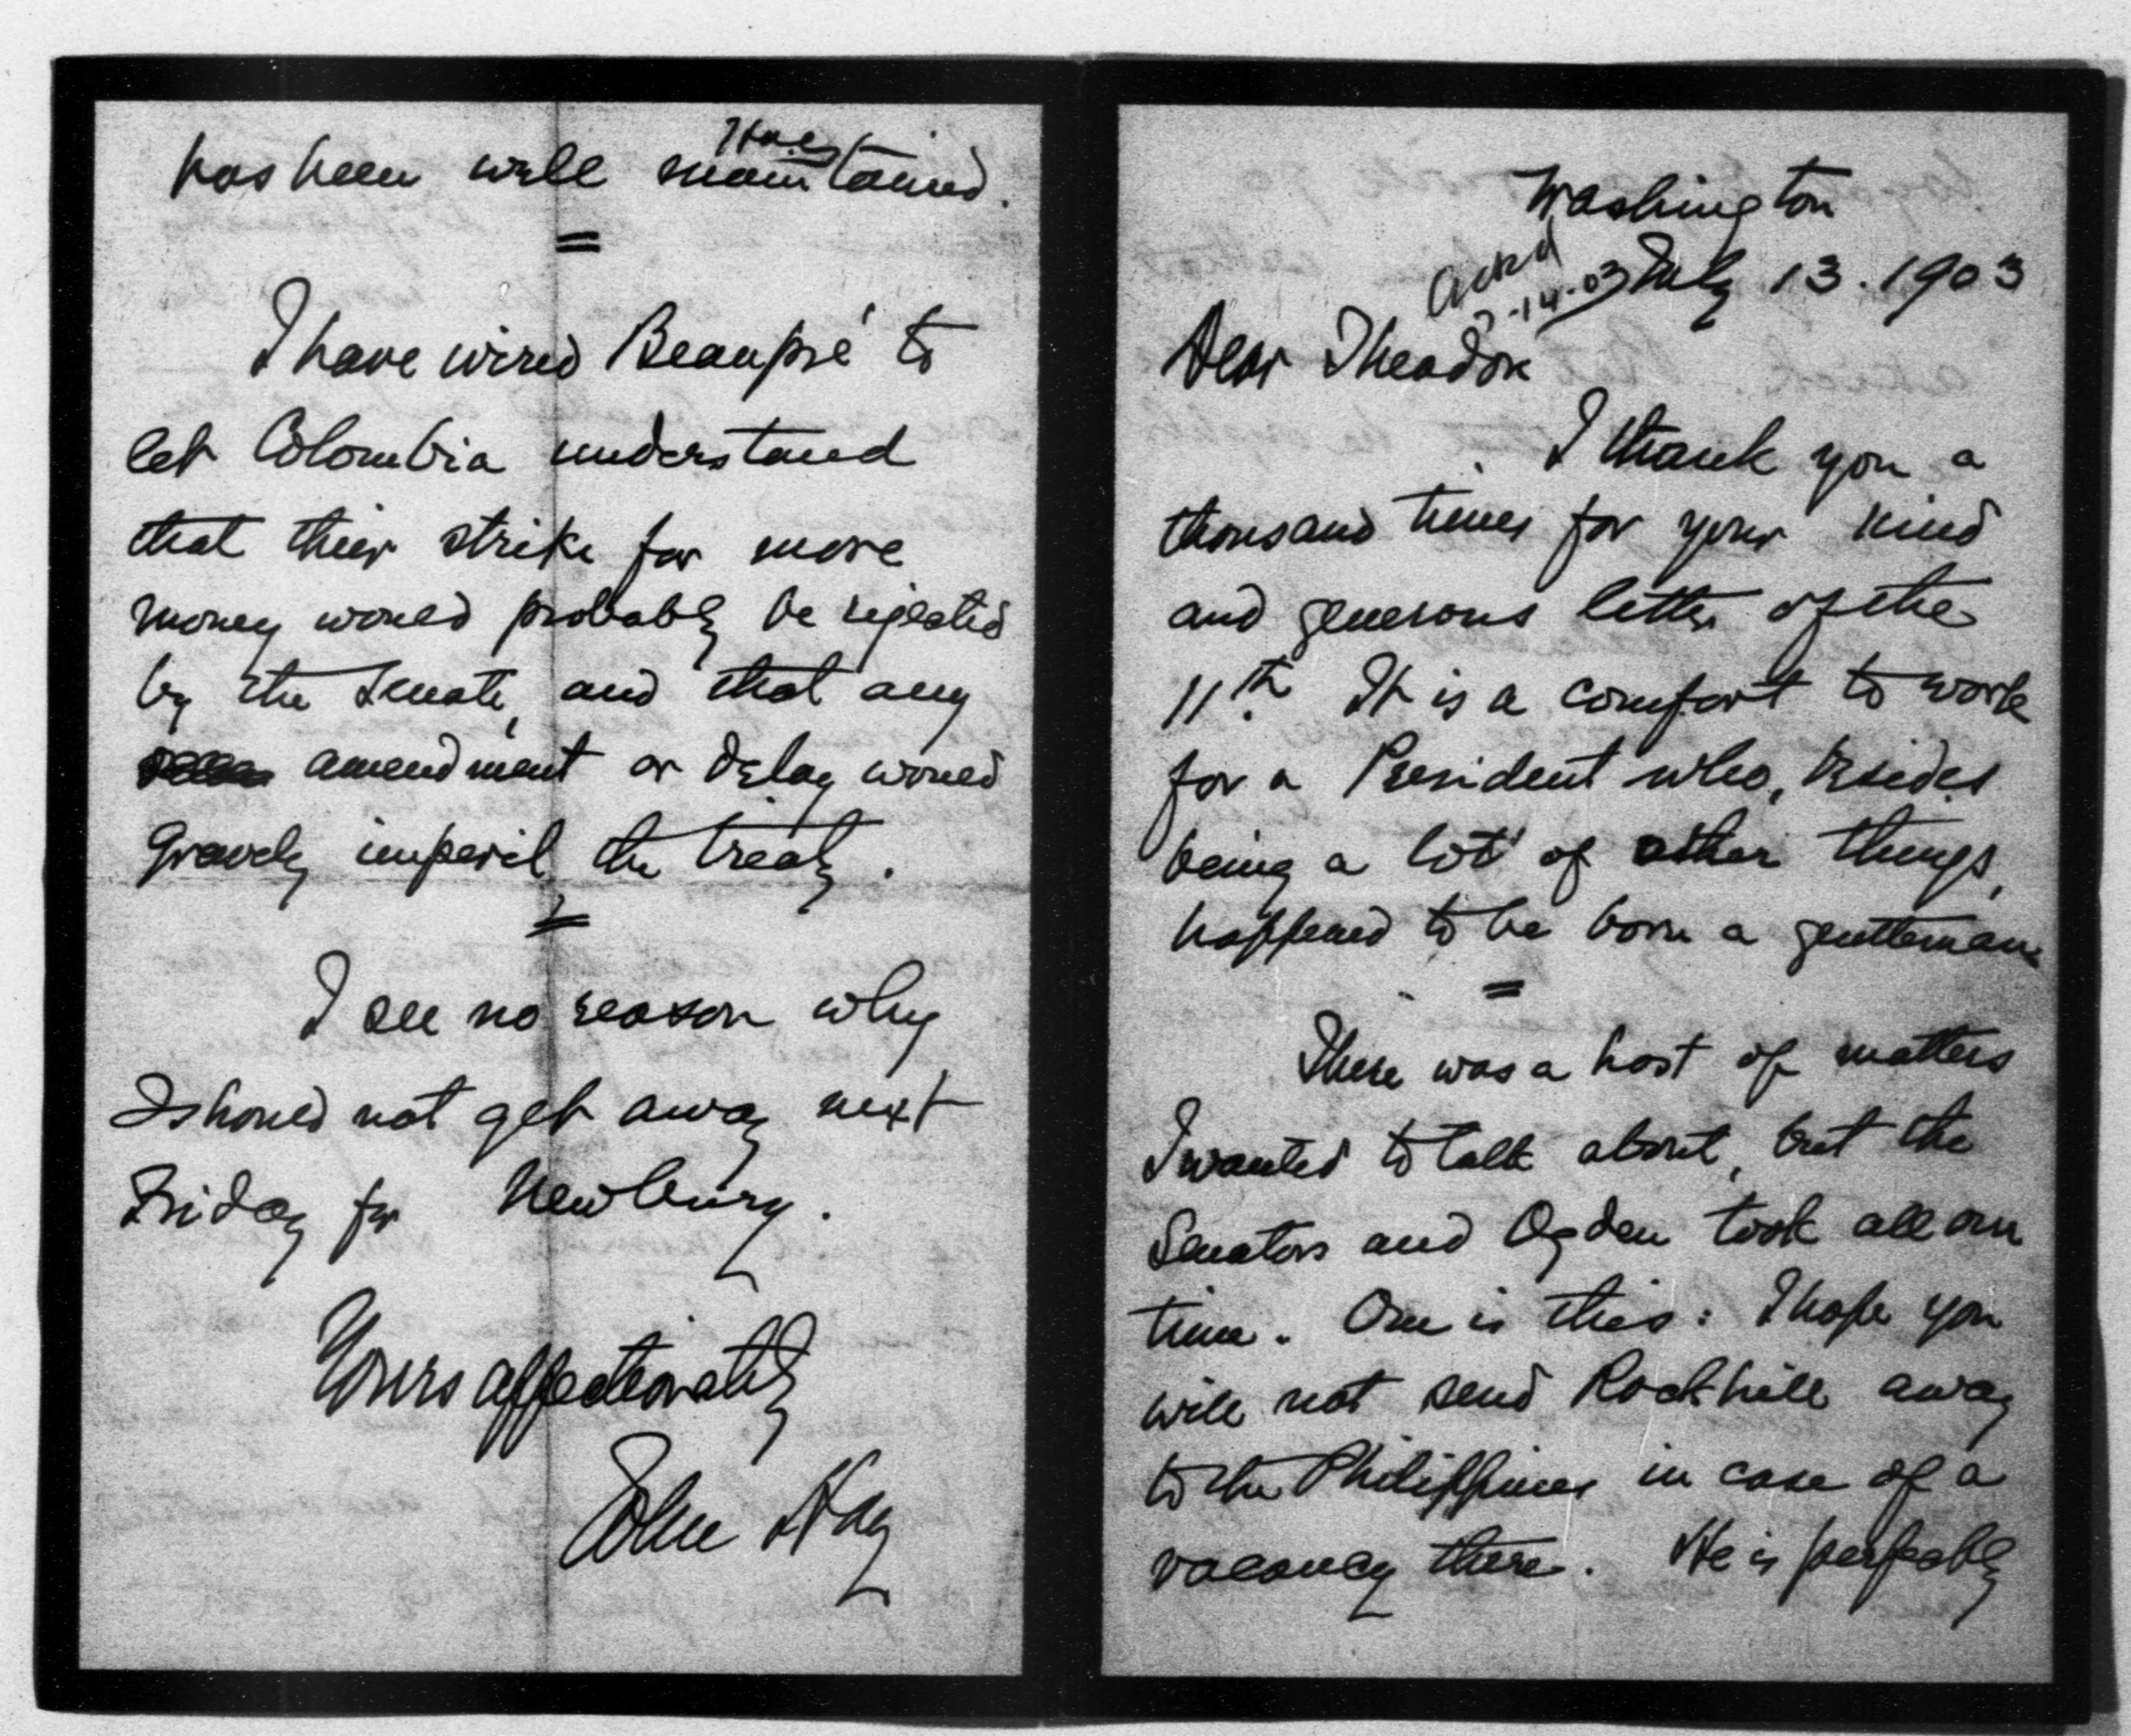 Washington
July 13. 1903
Ackd
7-14-03
Dear Theodore
I thank you a
thousand times for your kind
and generous letter of the
11th. It is a comfort to work
for a President who, besides
being a lot of other things,
happened to be born a gentleman.
=
There was a host of matters
I wanted to talk about, but the
Senators and Ogden took all our
time. One is this: I hope you
will not send Rockhill away
to the Philippines in case of a
vacancy there. He is perfectly
has been well maintained.
=
I have wired Beaupré to
let Colombia understand
that their strike for more
money would probably be rejected
by the Senate, and that any
amendment or delay would
gravely imperil the treaty.
=
I see no reason why
I should not get away next
Friday for Newbury.
Yours affectionately
John Hay